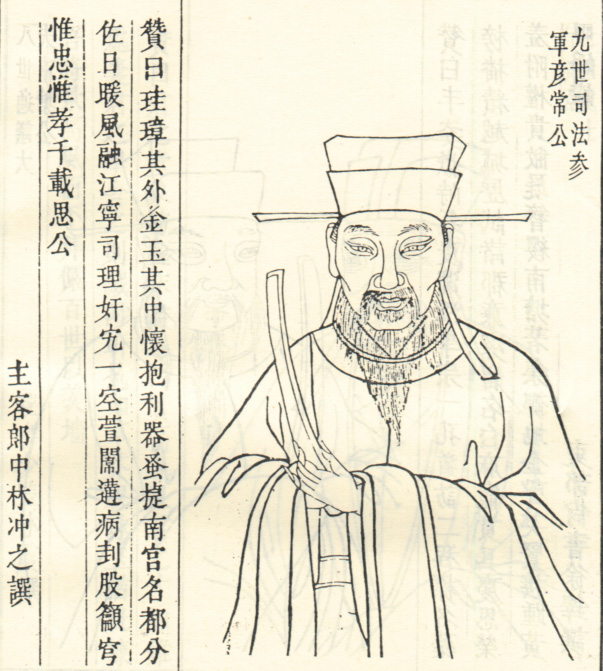 九世司法参
軍彦常公
贊曰珪璋其外金玉其中懷抱利器蚤捷南宫名都分
佐日暖風融江寧司理奸宄一空萱闈遘病刲股籲穹
惟忠惟孝千載思公
主客郎中林冲之譔